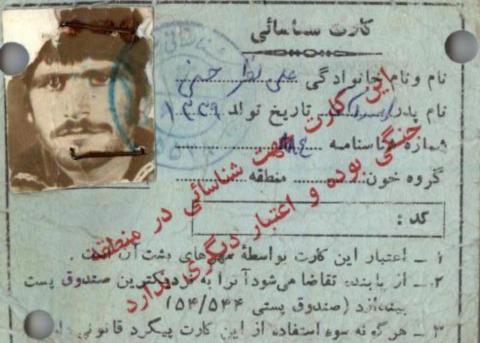 کارت شناسائی
نام و نام خانوادگی علی نظر حسنی
نام پدر تاریخ تولد ۱۳۳۹
شماره شناسنامه
گروه خون منطقه
کد :
۱ ــ اعتبار این کارت بواسطهٔ مهرهای پشت آن است .
۲ ــ از یابنده تقاضا می‌شود آنرا به نزدیکترین صندوق پست
بیندازد (صندوق پستی ۵۴/۵۴۴)
۳ ــ هر گونه سوء استفاده از این کارت پیگرد قانونی
این کارت جهت شناسائی در منطقه
جنگی بوده و اعتبار دیگری ندارد